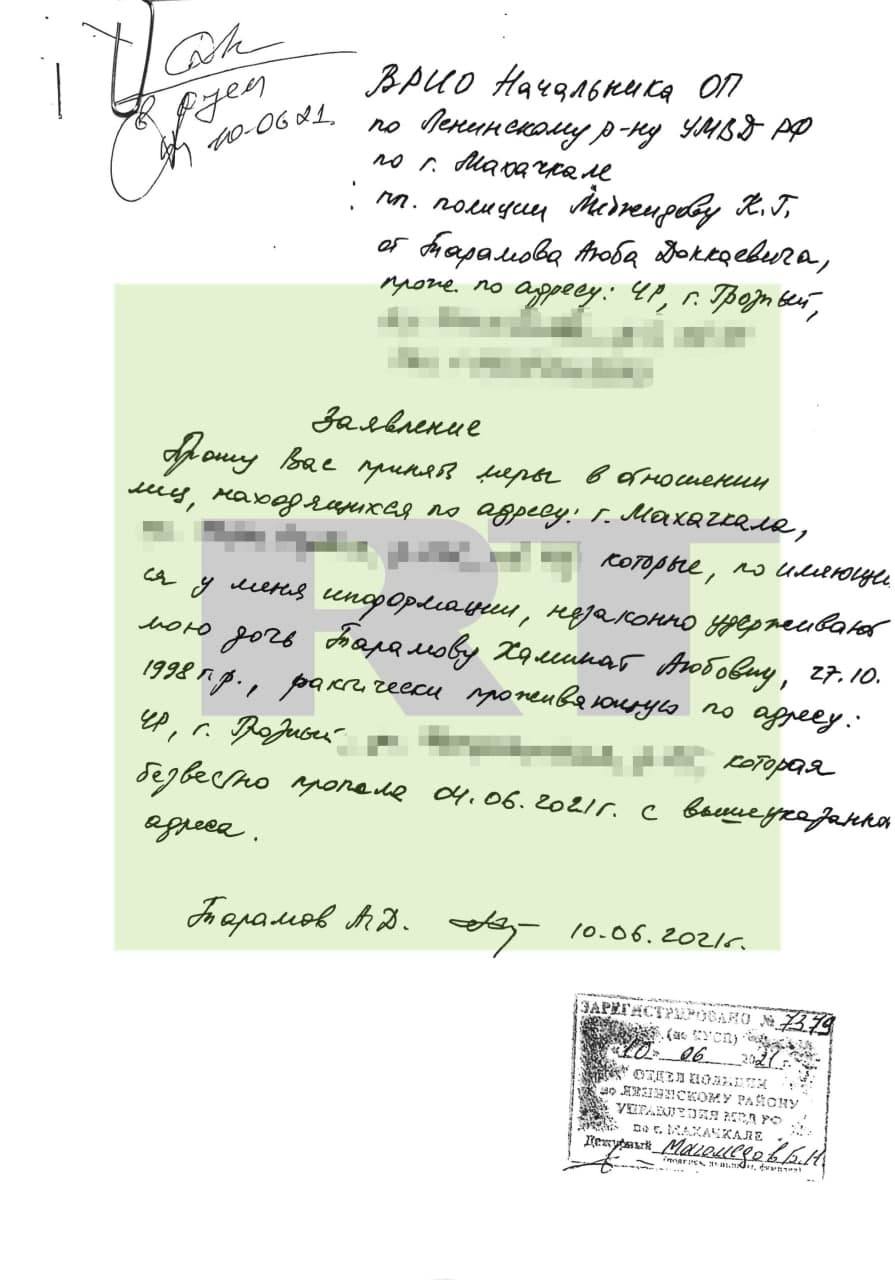 10-0621.
ВРИО Начальника ОП
по Ленинскому р-ну УМВД РФ
по г. Махачкале
пп. полиции Меджидову К.Г.
от Тарамова Аюба Доккаевича,
прож. по адресу: ЧР, г. Грозный,
Заявление
Прошу Вас принять меры в отношении
лиц, находящихся по адресу: г. Махачкала,
которые, по имеющи
ся у меня информации, незаконно удерживают
мою дочь Тарамову Халимат Аюбовну, 27.10.
1998 г.р., фактически проживающую по адресу:
ЧР, г. Грозный, которая
безвестно пропала 04.06.2021г. с вышеуказанно
адреса.
Тарамов А.Д. 10.06.2021г.
RT
ЗАРЕГИСТРИРОВАНО № 7379
(по КУСП)
"10" 06 2021 г.
ОТДЕЛ ПОЛИЦИИ
по ЛЕНИНСКОМУ РАЙОНУ
УПРАВЛЕНИЯ МВД РФ
по г. МАХАЧКАЛЕ
Дежурный Магомедов Б.Н